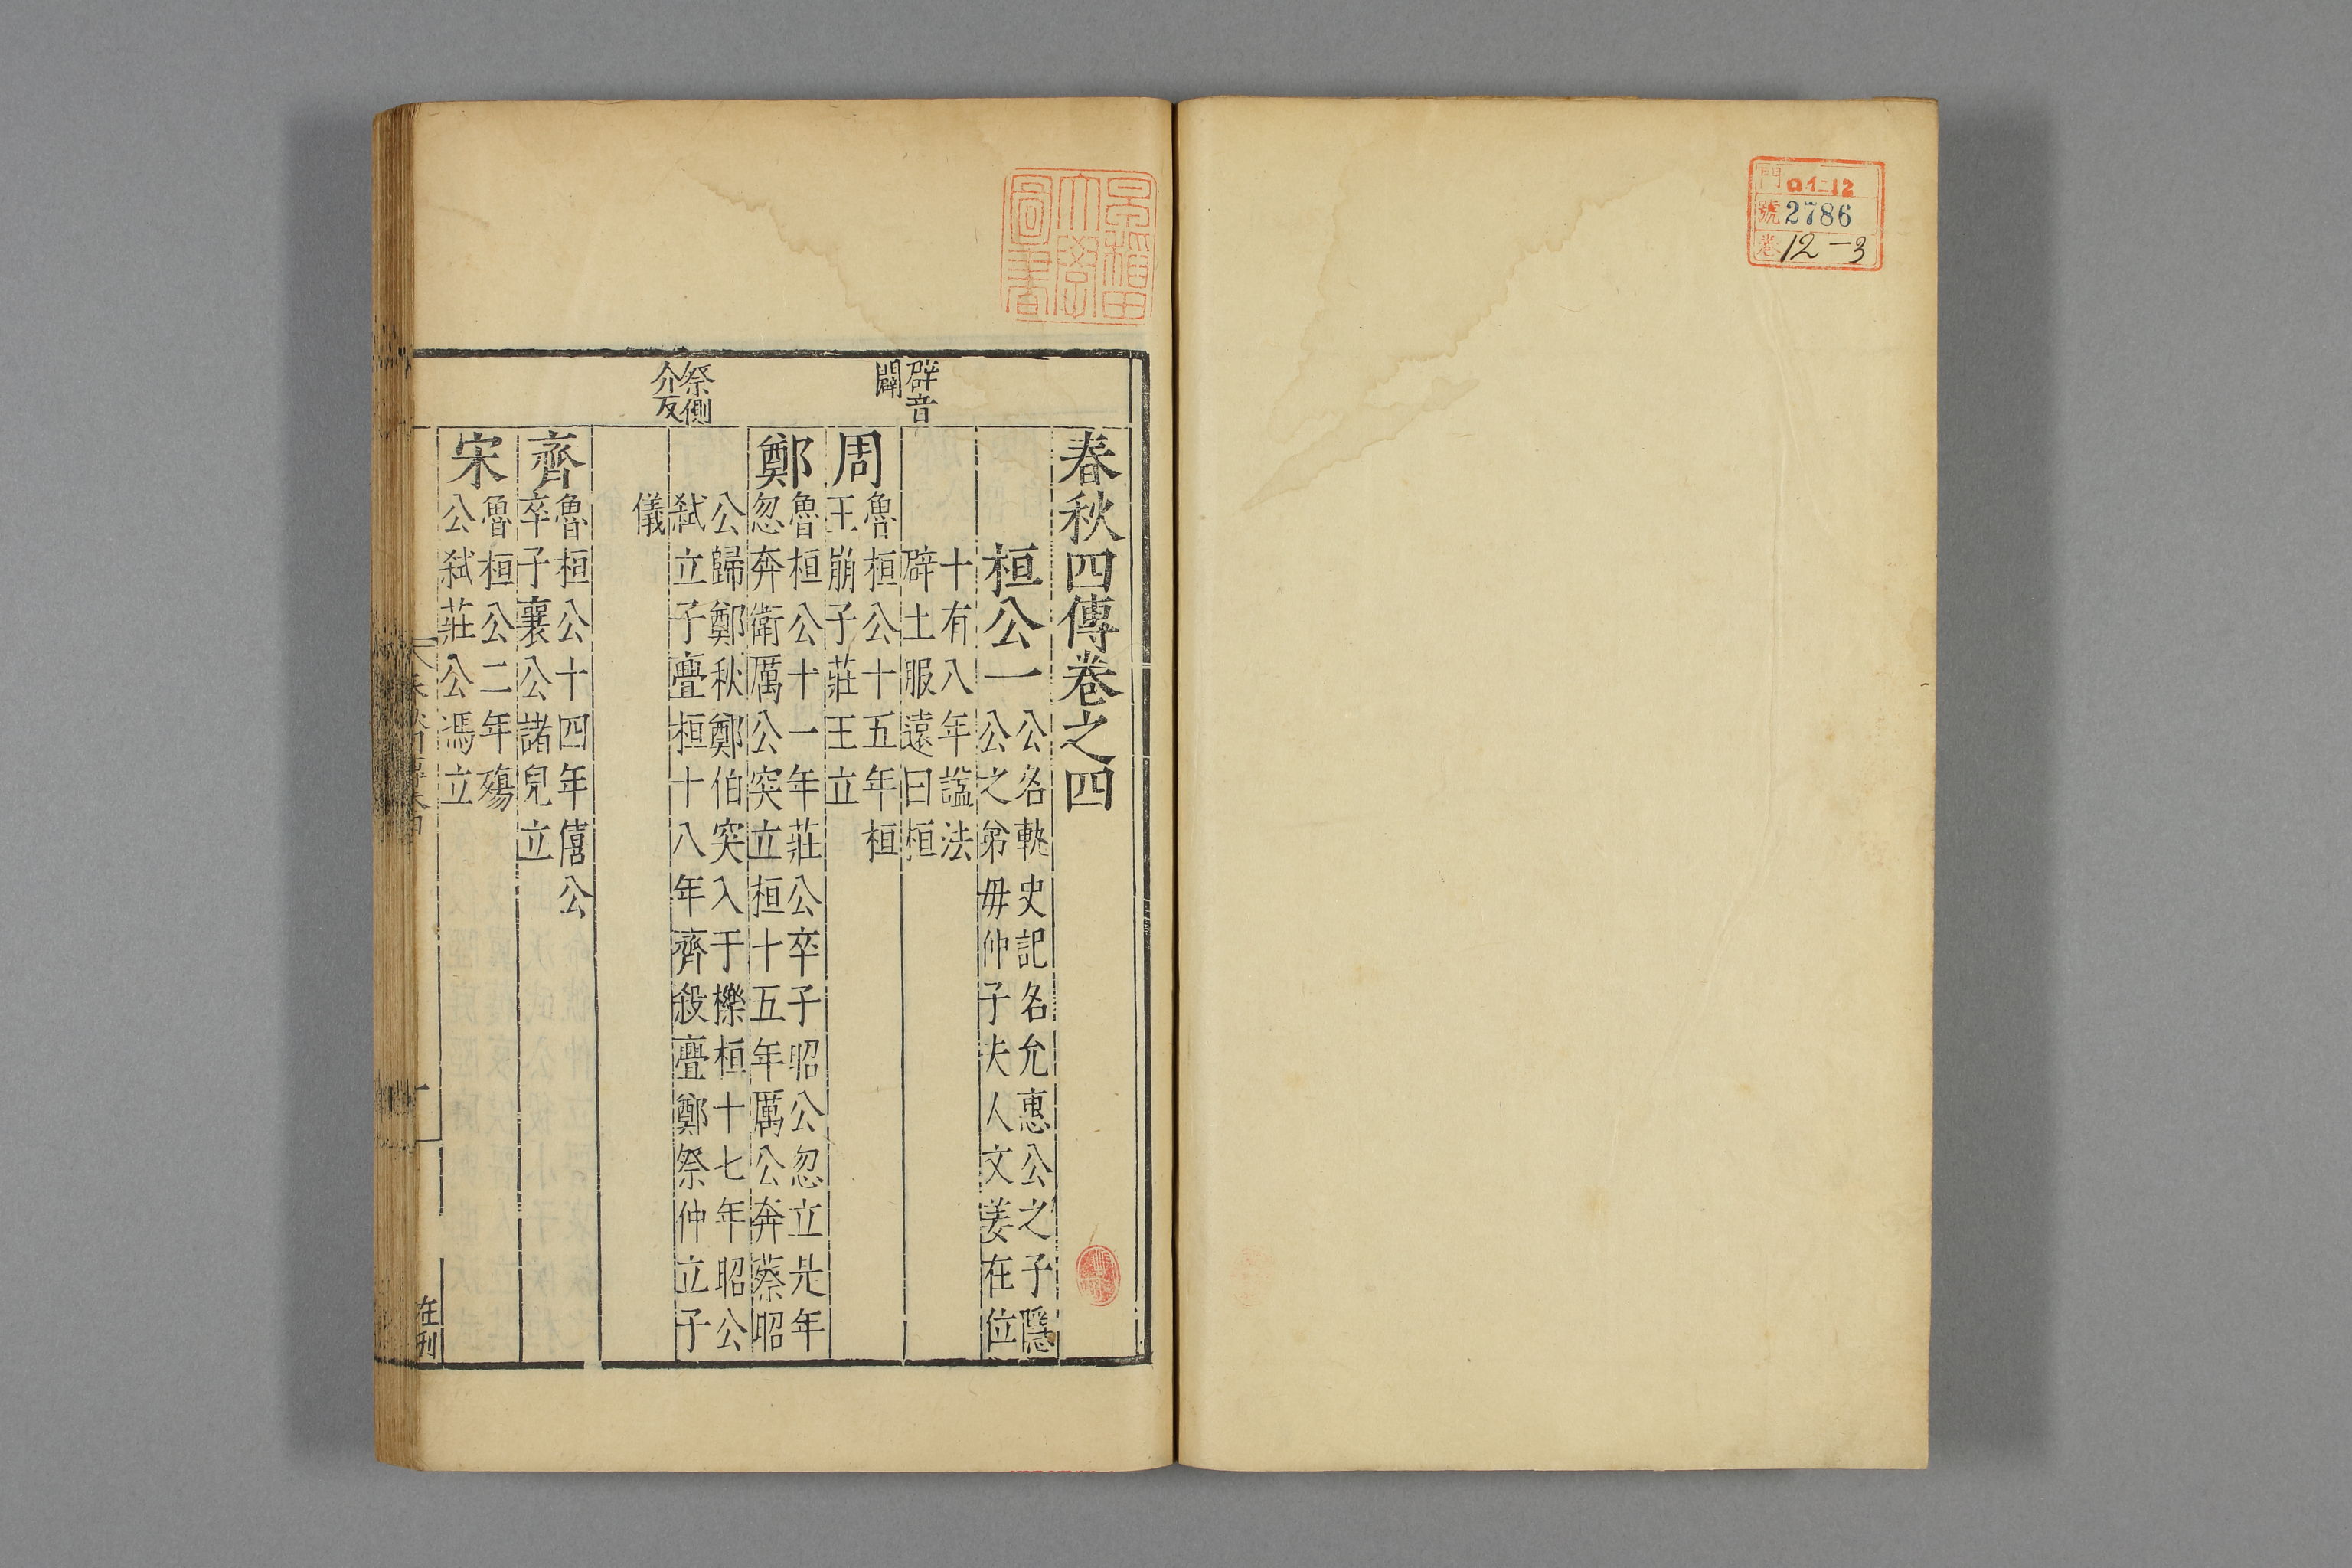 門 ロ12
號 2786
卷 12-3
早稲田
大學
圖書
辟音
闢
祭側
介反
春秋四傳卷之四
桓公一
公名軌史記名允惠公之子隱
公之弟毋仲子夫人文姜在位
十有八年諡法
辟土服遠曰桓
周
魯桓公十五年桓
王崩子莊王立
鄭
魯桓公十一年莊公卒子昭公忽立是年
忽奔衛厲公突立桓十五年厲公奔蔡昭
公歸鄭秋鄭伯突入于櫟桓十七年昭公
弑立子亹桓十八年齊殺亹鄭祭仲立子
儀
齊
魯桓公十四年僖公
卒子襄公諸兒立
宋
魯桓公二年殤
公弑莊公馮立